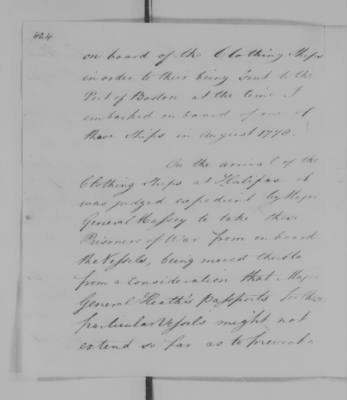 424
on board of the Clothing Ships
in order to their being sent to the
Port of Boston at the time I
embarked on board of one of
those Ships in August 1778.
On the arrival of the
Clothing Ships at Halifax it
was judged expedient by Major
General Massey to take these
Prisoners of War from on board
the Vessels, being moved thereto
from a Consideration that Major
General Heath's Passports for those
particular Vessels might not
extend so far as to prevent